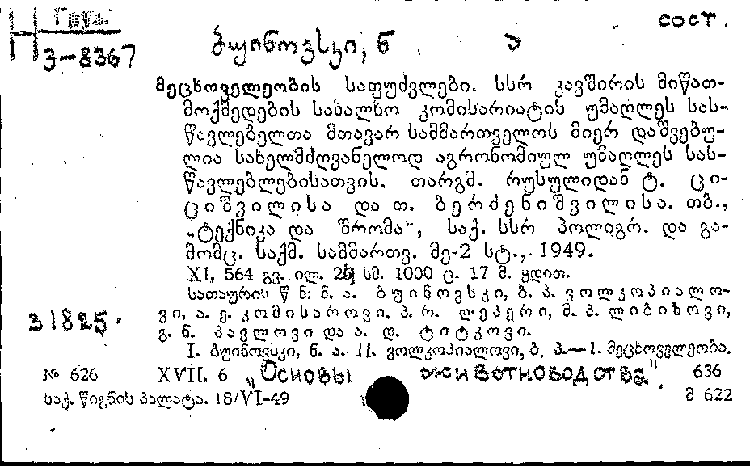 Груз.
Н
З-8367
სост.
ბჟინოვსკი, ნ ა
მეცხოველეობის საფუძვლები. სსრ კავშირის მიწათ-
მოქმედების სახალხო კომისარიატის უმაღლეს სას-
წავლებელთა მთავარ სამმართველოს მიერ დაშვებუ-
ლია სახელმძღვანელოდ აგრონომიულ უმაღლეს სას-
წავლებლებისათვის. თარგმ. რუსულიდან ტ. ცი-
ციშვილისა და თ. ბერძენიშვილისა. თბ.,
„ტექნიკა და შრომა“, საქ. სსრ პოლიგრ. და გა-
მომც. საქმ. სამმართვ. მე-2 სტ., 1949.
XI, 564 გვ. ილ. 2% სმ. 1000 ც. 17 მ. ყდით.
სათაურის წ ნ: ნ. ა. ბჟინოვსკი, ბ. პ. ვოლკოპიალო-
ვი, ა. ე. კომისაროვი, პ. რ. ლეპერი, მ. პ. ლიბიზოვი,
გ. ნ. პავლოვი და ა. დ. ტიტკოვი.
31825.
I. ბჟინოვსკი, ნ. ა. II. ვოლკოპიალოვი, ბ. პ.—1. მეცხოველეობა.
№ 626 XVII. 6 „Основы животноводства" 636
საქ. წიგნის პალატა. 18/VI-49 მ 622